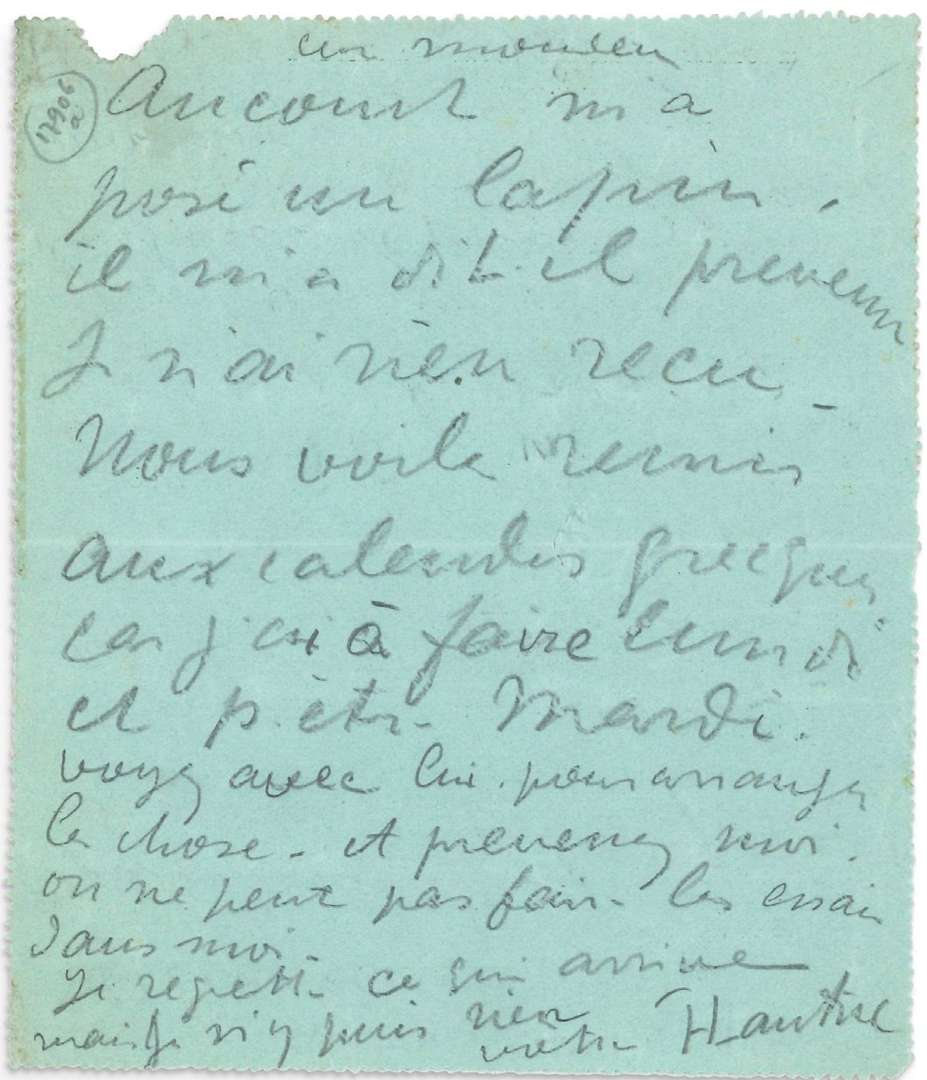 un
17906
a
Aucourt m'a
posé un lapin,
il m'a dit il
Je n'ai rien reçu
Nous voila remis
aux calendes grecques
car j'ai à faire lundi
et p. etre Mardi.
voyez avec lui pour arranger
la chose - et prevenez moi.
on ne peut pas faire les essais
sans moi.
Je regrette ce qui arrive
mais je n'y puis rien
votre